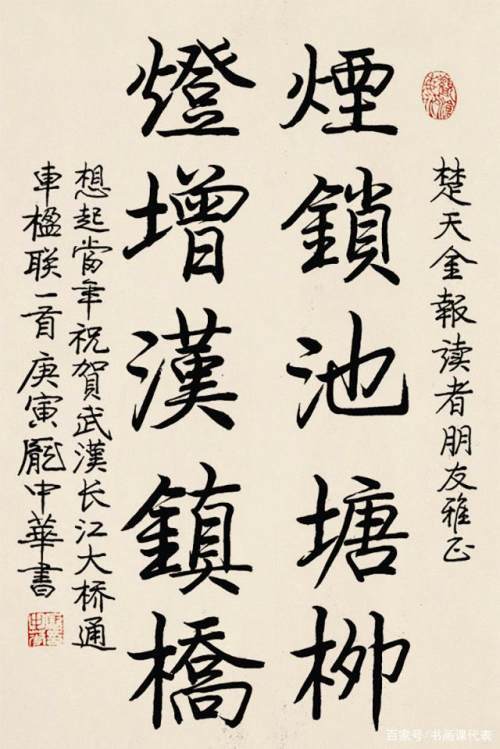 楚天金報读者朋友雅正
煙鎖池塘柳
燈增漢鎮橋
想起當年祝賀武漢长江大桥通
車楹联一首庚寅龐中華書
百家号/书画课代表